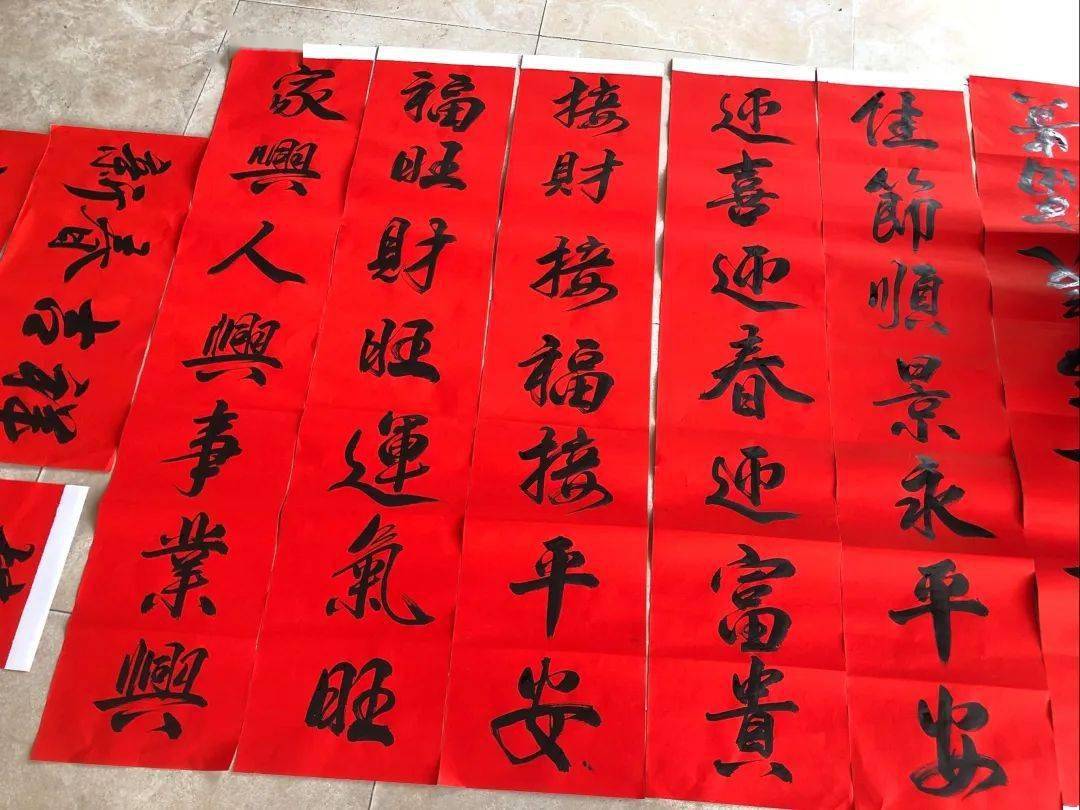 佳節順景永平安
迎喜迎春迎富貴
接財接福接平安
福旺財旺運氣旺
家興人興事業興
新春吉祥